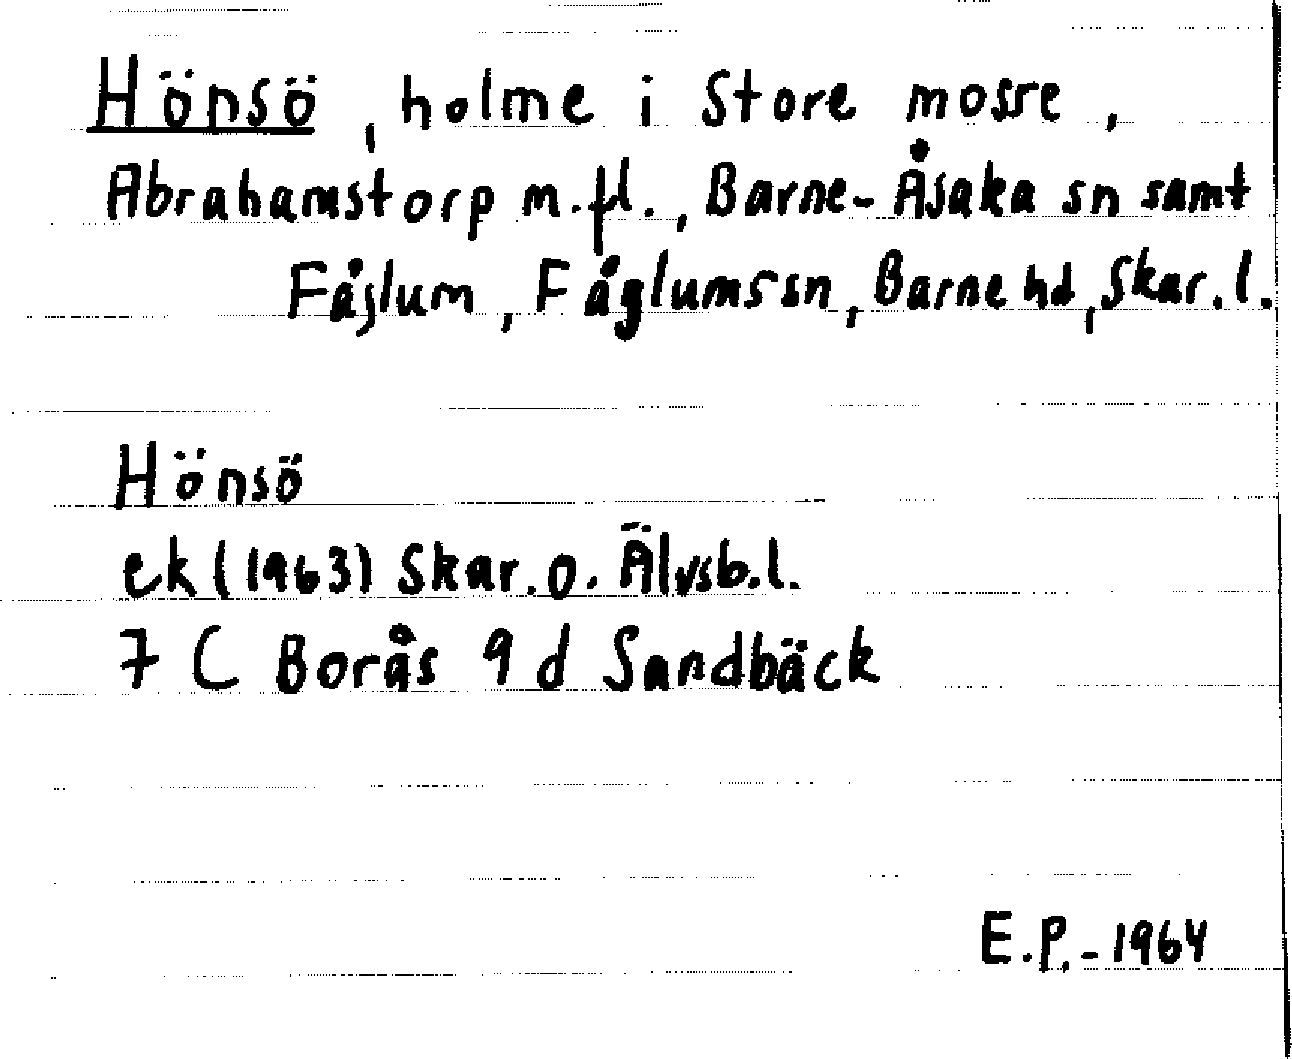 Hönsö, holme i Store mosse,
Abrahamstorp m.fl., Barne-Åsaka sn samt
Fåglum, Fåglums sn, Barne hd, Skar.l.
Hönsö
ek (1963) Skar. o. Älvsb.l.
7 C Borås 9 d Sandbäck
E.P.-1964